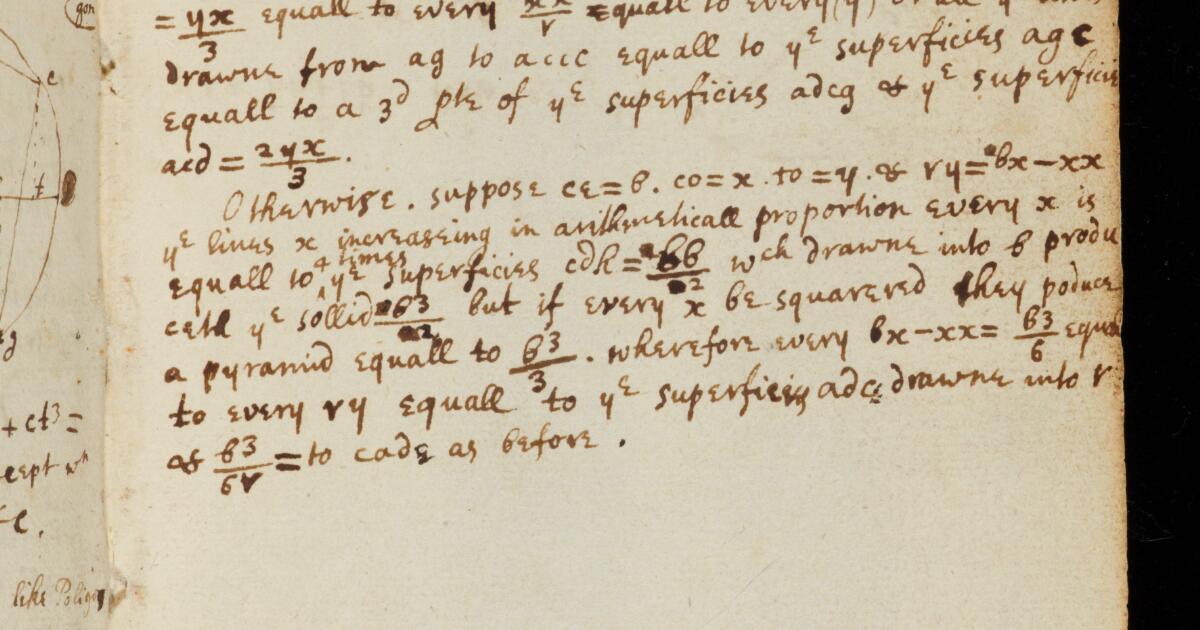 gon
= yx/3 equall to every xx/r =equall to every (y) or all yᵉ lines
drawne from ag to accc equall to yᵉ superficies agc
equall to a 3ᵈ pte of yᵉ superficies adcg & yᵉ superficie
acd = 2yx/3.
Otherwise. suppose ce=b. co=x. to=y. & ry=bx−xx
yᵉ lines x increaseing in arithmeticall proportion every x is
equall to 4 times yᵉ superficies cdh = bb/2 wᶜʰ drawne into b produ
ceth yᵉ sollid b3/2 but if every x be squarered they poduce
a pyramid equall to b3/3. wherefore every bx−xx= b3/6 equall
to every ry equall to yᵉ superficies adc drawne into r
& b3/6r = to cade as before.
c
t
g
+ ct3 =
cept wⁿ
c.
like Poligo